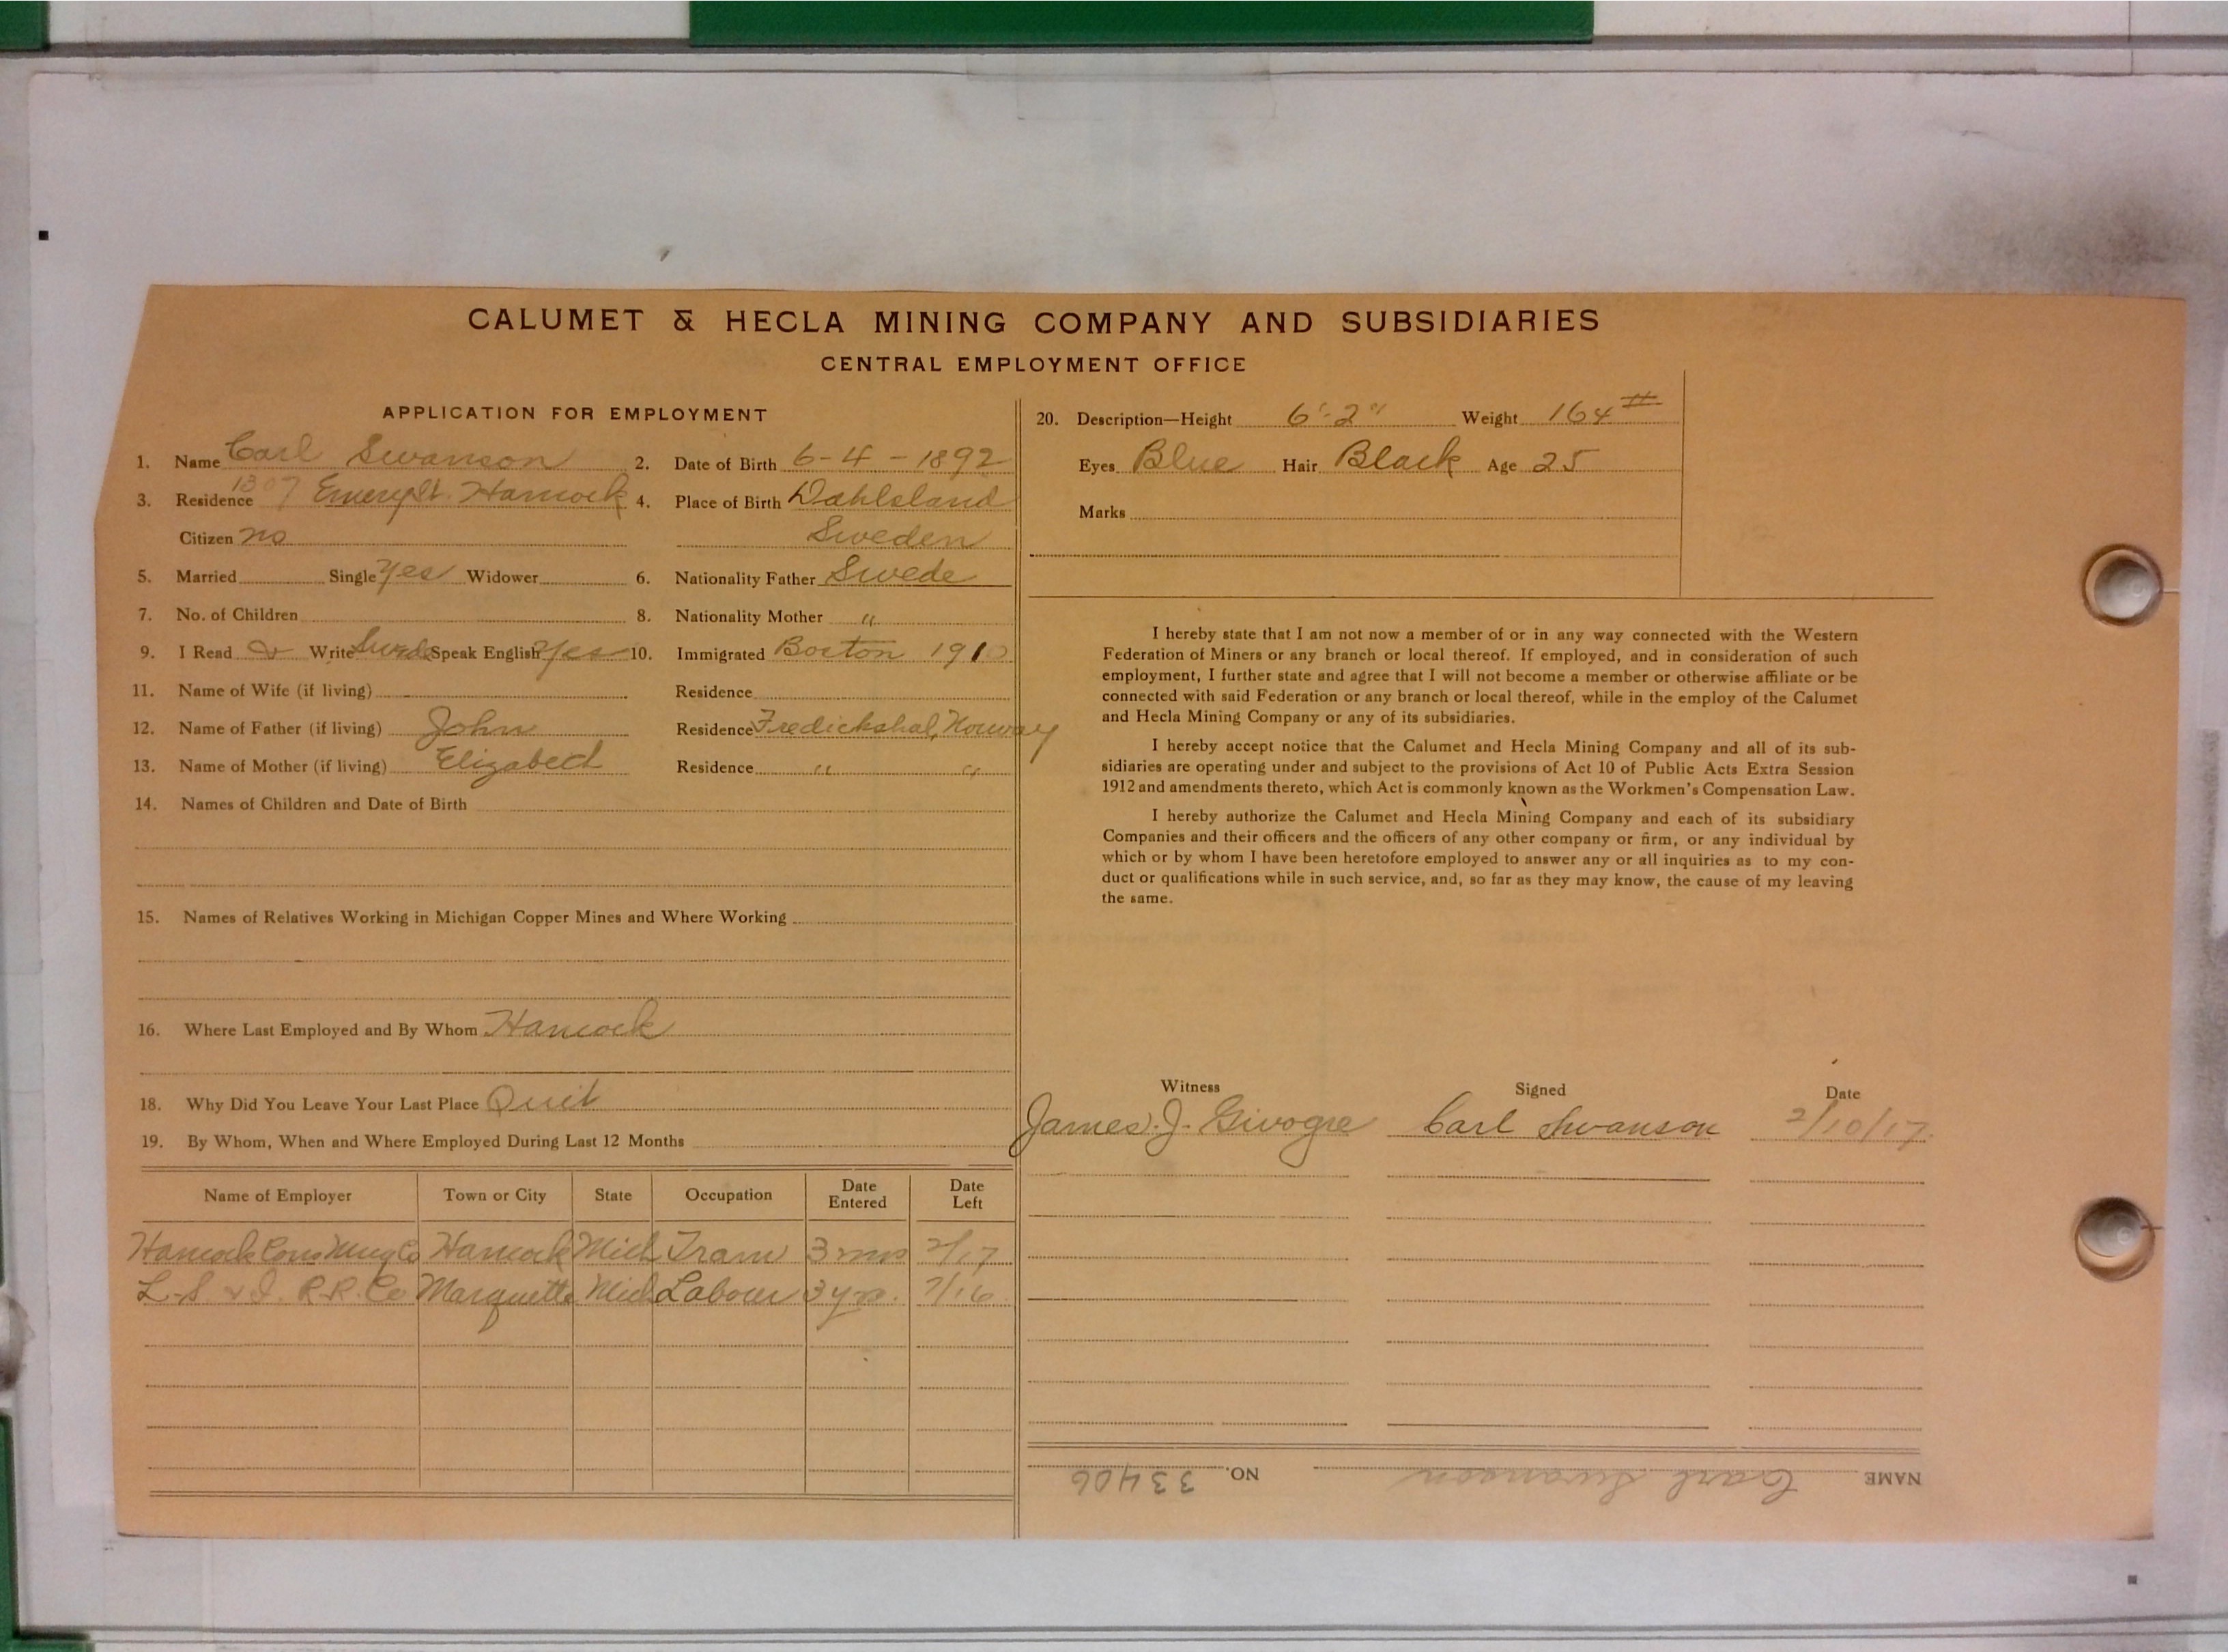 CALUMET & HECLA MINING COMPANY AND SUBSIDIARIES
CENTRAL EMPLOYMENT OFFICE
APPLICATION FOR EMPLOYMENT
1. Name Carl Swanson 2. Date of Birth 6-4-1892
3. Residence 1307 Emery St. Hancock 4. Place of Birth Dahlsland
Citizen no Sweden
5. Married Single Yes Widower 6. Nationality Father Swede
7. No. of Children 8. Nationality Mother "
9. I Read & Write Swede Speak English Yes 10. Immigrated Boston 1910
11. Name of Wife (if living) Residence
12. Name of Father (if living) John Residence Fredickshal, Norway
13. Name of Mother (if living) Elizabect Residence " "
14. Names of Children and Date of Birth
15. Names of Relatives Working in Michigan Copper Mines and Where Working
16. Where Last Employed and By Whom Hancock
18. Why Did You Leave Your Last Place Quit
19. By Whom, When and Where Employed During Last 12 Months
Name of Employer Town or City State Occupation Date Entered Date Left
Hancock Cons Mng Co Hancock Mich Tram 3 mos 2/17
L.S & I. R.R. Co Marquette Mich Labour 3 yrs. 7/16
20. Description—Height 6'-2" Weight 164 #
Eyes Blue Hair Black Age 25
Marks
I hereby state that I am not now a member of or in any way connected with the Western
Federation of Miners or any branch or local thereof. If employed, and in consideration of such
employment, I further state and agree that I will not become a member or otherwise affiliate or be
connected with said Federation or any branch or local thereof, while in the employ of the Calumet
and Hecla Mining Company or any of its subsidiaries.
I hereby accept notice that the Calumet and Hecla Mining Company and all of its sub-
sidiaries are operating under and subject to the provisions of Act 10 of Public Acts Extra Session
1912 and amendments thereto, which Act is commonly known as the Workmen's Compensation Law.
I hereby authorize the Calumet and Hecla Mining Company and each of its subsidiary
Companies and their officers and the officers of any other company or firm, or any individual by
which or by whom I have been heretofore employed to answer any or all inquiries as to my con-
duct or qualifications while in such service, and, so far as they may know, the cause of my leaving
the same.
Witness Signed Date
James. J. Givogre Carl Swanson 2/10/17.
NAME Carl Swanson NO. 33406